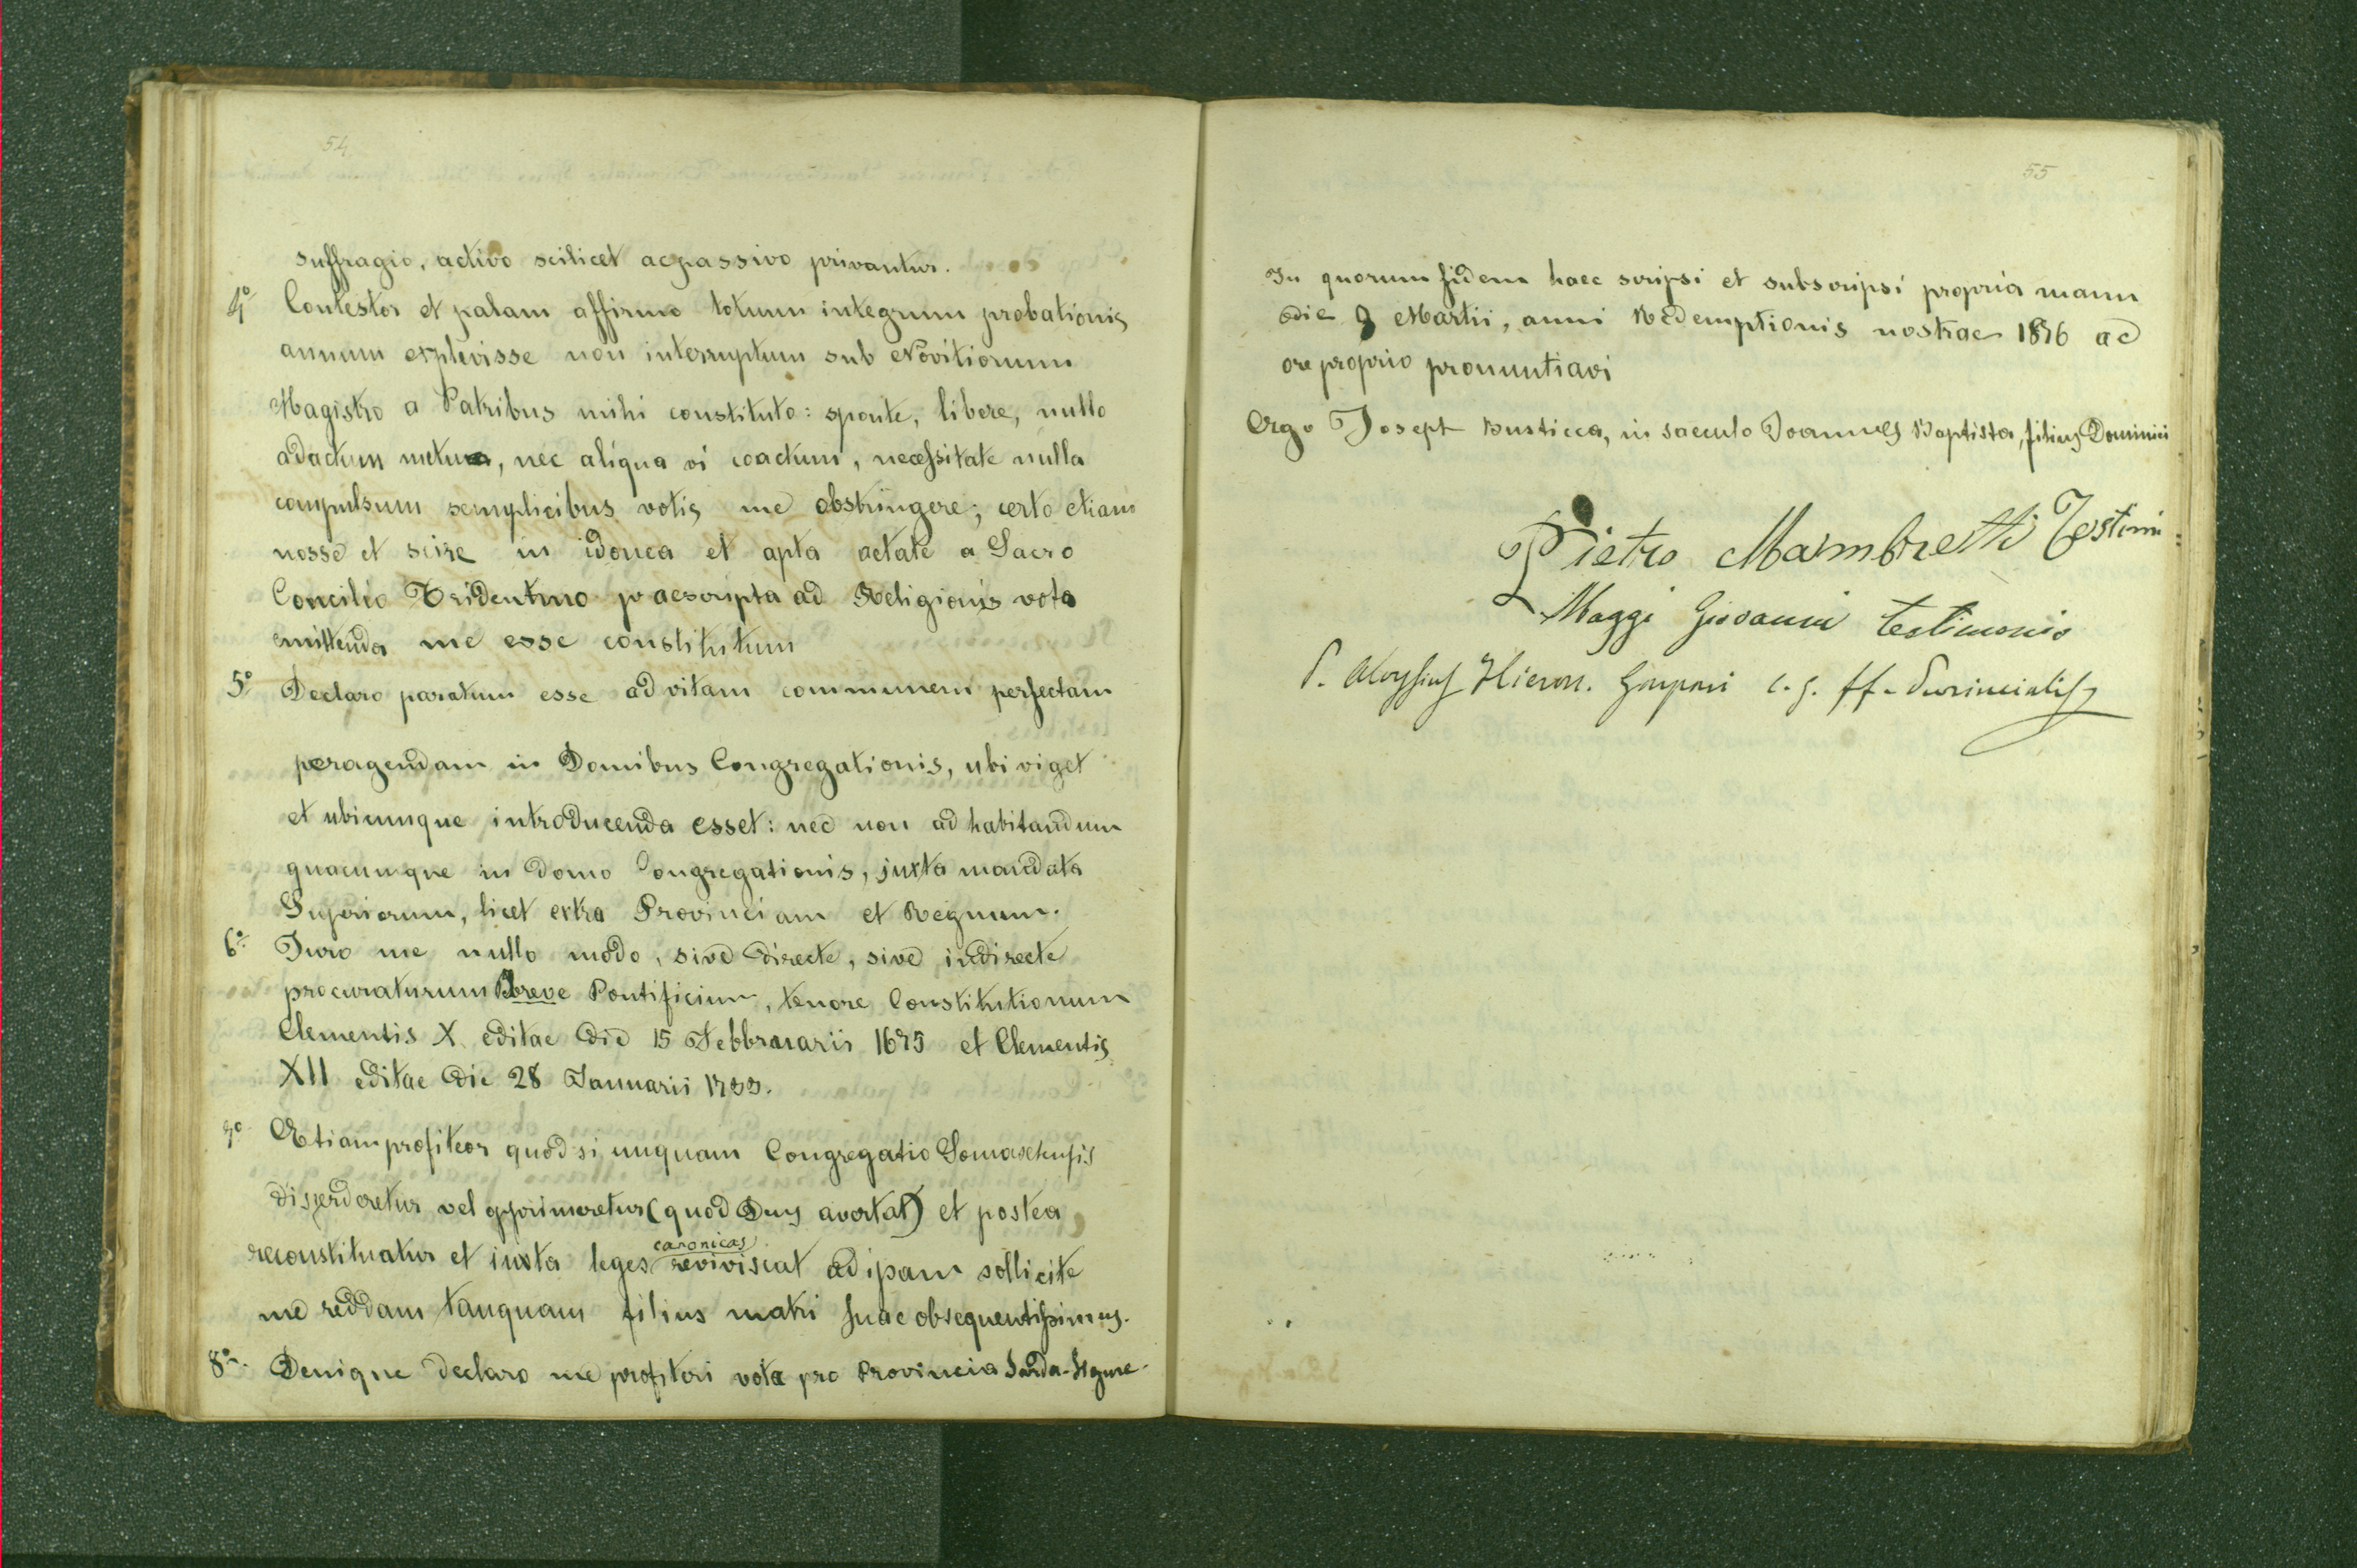 54
suffragio, activo scilicet ac passivo privantur.
4º Contestor et palam affirmo totum integrum probationis
annum explevisse non interruptum sub Novitiorum
Magistro a Patribus mihi constituto: sponte, libere, nullo
adactum metu, nec aliqua vi coactum, necessitate nulla
compulsum semplicibus votis me obstringere; certo etiam
nosse et scire in idonea et apta aetate a Sacro
Concilio Tridentino praescripta ad Religionis vota
emittenda me esse constitutum
5º Declaro paratum esse ad vitam communem perfectam
peragendam in Domibus Congregationis, ubi viget
et ubicumque introducenda esset: nec non ad habitandum
quacumque in domo Congregationis, juxta mandata
Superiorum, licet extra Provinciam et Regnum.
6º Juro me nullo modo, sive directe, sive indirecte
procuraturum Breve Pontificium, tenore Constitutionum
Clementis X editae die 15 Febbruarii 1675 et Clementis
XII editae die 28 Januarii 1733.
7º Etiam profiteor quod si unquam Congregatio Somaschensis
disperderetur vel opprimeretur (quod Deus avertat) et postea
canonicas
reconstituatur et iuxta leges reviviscat ad ipsam sollicite
me reddam tanquam filius matri suae obsequentissimus.
8º. Denique declaro me profiteri vota pro Provincia Sarda-Ligure
55
In quorum fidem haec scripsi et subscripsi propria manu
die 9 Martii, anni Redemptionis nostrae 1876 ac
ore proprio pronuntiavi
Ergo Josept Busticca, in saeculo Joannes Baptista, filius Dominici
Pietro Mambretti Testimi:
Maggi Giovanni testimonio
P. Aloysius Hieron. Gaspari c. s. ff. Provincialis